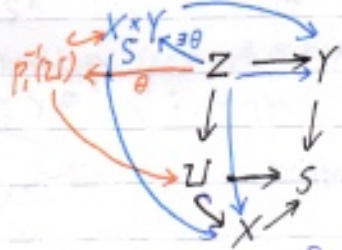 X × Y
S ∃θ
p₁⁻¹(U) θ Z Y
U S
X